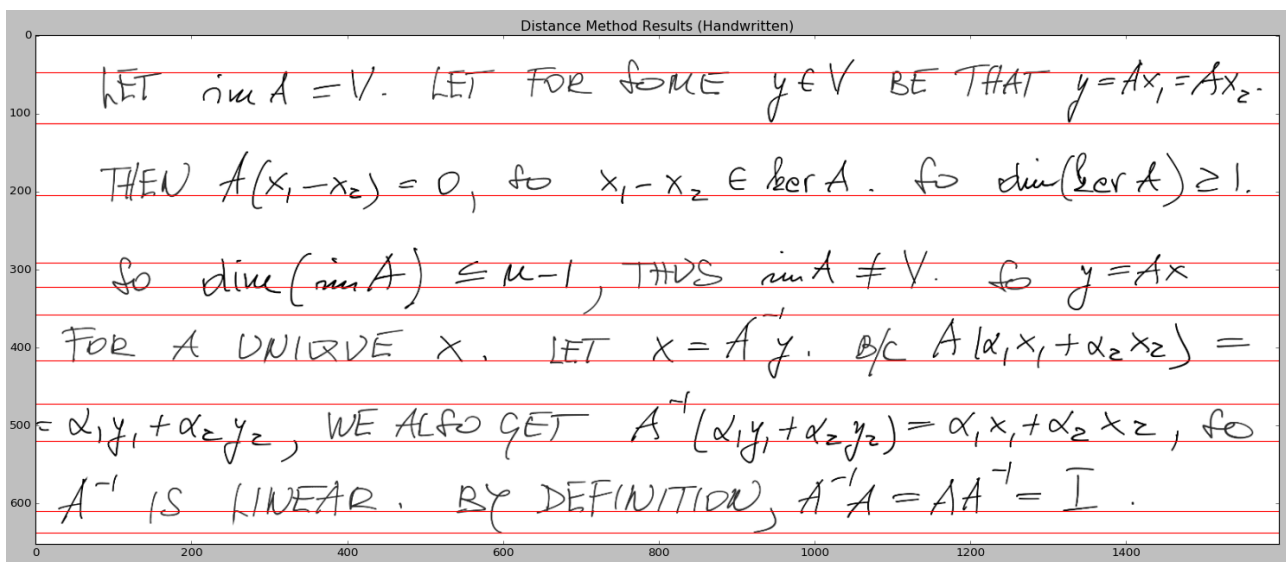 Distance Method Results (Handwritten)
0
LET im A = V. LET FOR SOME y ∈ V BE THAT y = Ax₁ = Ax₂.
100
THEN A(x₁ − x₂) = 0, SO x₁ − x₂ ∈ ker A. SO dim(ker A) ≥ 1.
200
SO dim(im A) ≤ n − 1, THUS im A ≠ V. SO y = Ax
300
FOR A UNIQUE x. LET x = A⁻¹y. B/C A(α₁x₁ + α₂x₂) =
400
= α₁y₁ + α₂y₂, WE ALSO GET A⁻¹(α₁y₁ + α₂y₂) = α₁x₁ + α₂x₂, SO
500
A⁻¹ IS LINEAR. BY DEFINITION, A⁻¹A = AA⁻¹ = I.
600
0 200 400 600 800 1000 1200 1400